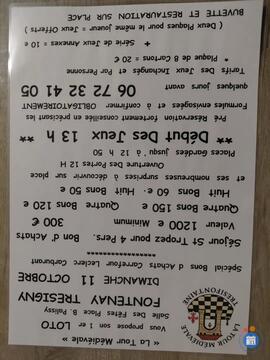 « La Tour Médiévale »
Vous propose son 1 er LOTO
Salle Des Fêtes Place B. Palissy
FONTENAY TRESIGNY
DIMANCHE 11 OCTOBRE
LA TOUR MÉDIÉVALE
TRÉSIFONTAINE
Spécial Bons d'achats Carrefour Leclerc
Séjour St Tropez pour 4 Pers. Bon d'Achats
Valeur 1200 € Minimum 300 €
Quatre Bons 150 € Quatre Bons 120 €
Huit Bons 60 €. Huit Bons 50 €
et ses nombreuses surprises à découvrir sur place
Ouverture Des Portes 12 H
Places Gardées Jusqu'à 12 h 50
** Début Des Jeux 13 h **
Réservation Fortement conseillée en précisant les
Formules envisagées et à confirmer OBLIGATOIREMENT
quelques jours avant 06 72 32 41 05
Tarifs Des Jeux Inchangés et Par Personne
* Plaque de 8 Cartons = 20 €
+ Série de Jeux Annexes = 10 €
( Deux plaques Pour le même joueur = Jeux Offerts )
BUVETTE ET RESTAURATION SUR PLACE